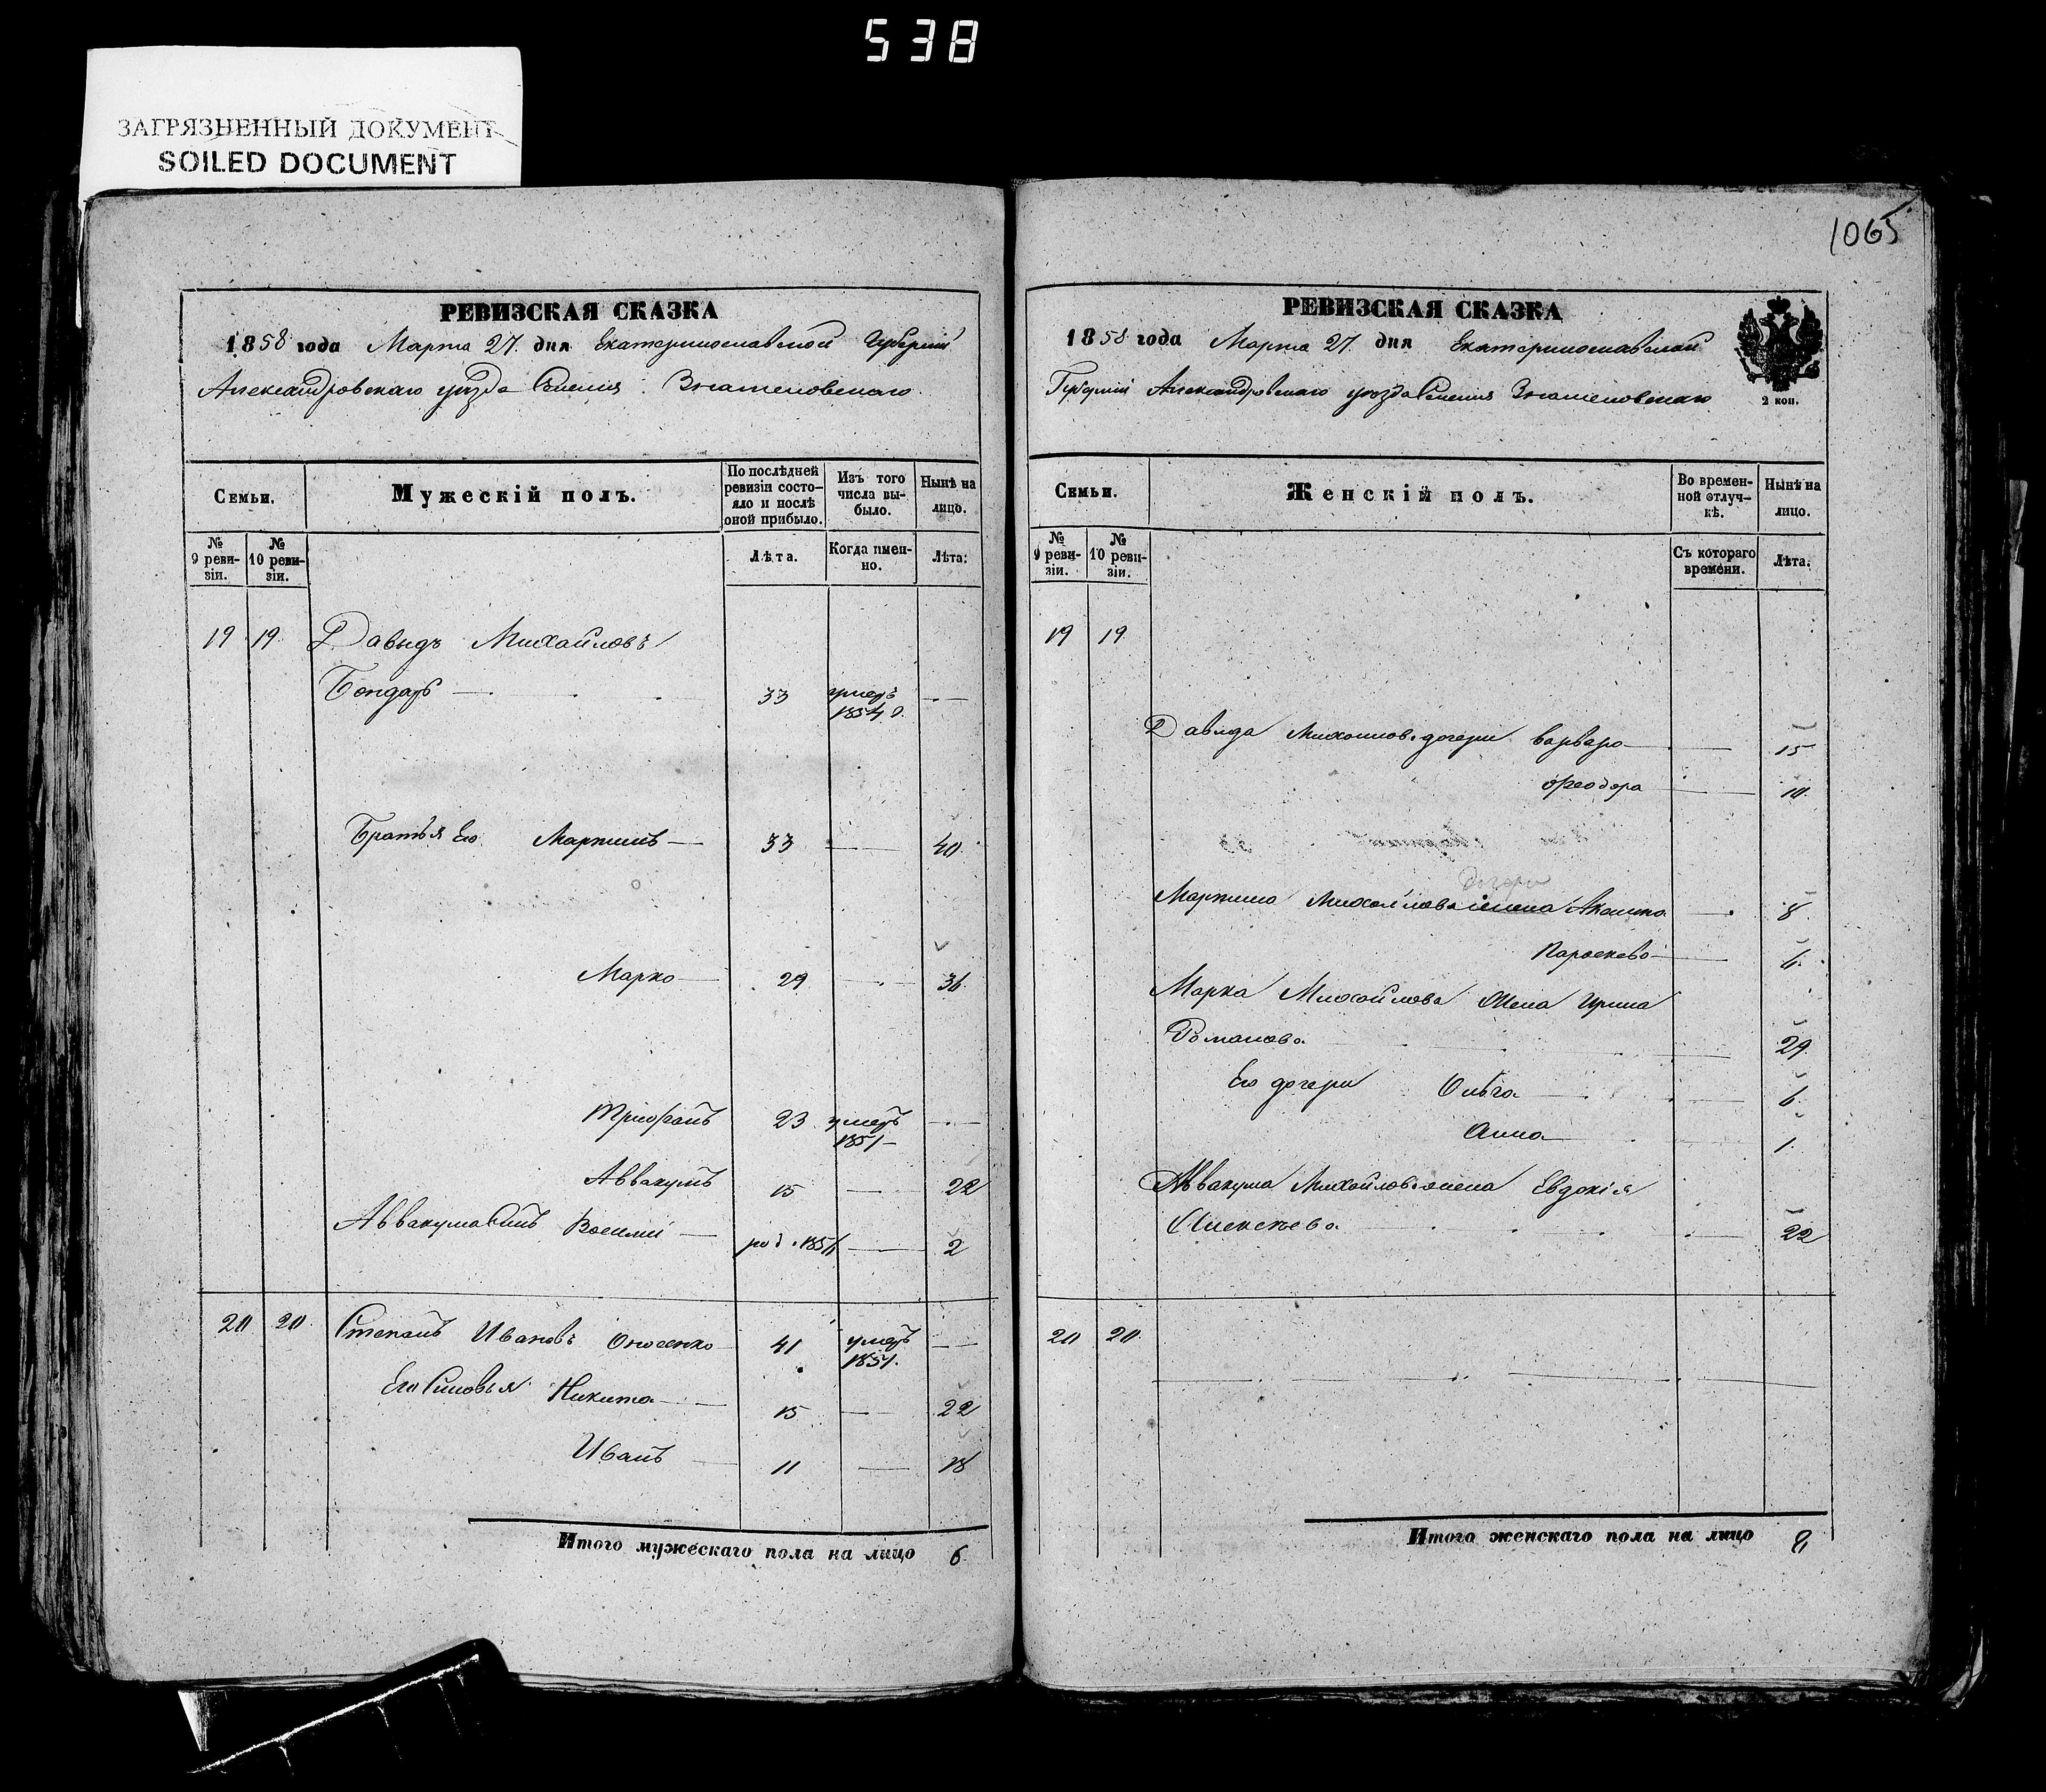 538
ЗАГРЯЗНЕННЫЙ ДОКУМЕНТ
SOILED DOCUMENT
РЕВИЗСКАЯ СКАЗКА
1858 года Марта 27. дня Екатеринославской Губерніи
Александровскаго уѣзда Знаменовскаго.
Семьи.
Мужескій полъ.
По послѣдней ревизіи состояло и послѣ оной прибыло.
Изъ того числа выбыло.
Нынѣ на лицо.
№ 9 ревизіи.
№ 10 ревизіи.
Лѣта.
Когда имен-но.
Лѣта.
19 19 Давыдъ Михайловъ
Бондарь — 33 умеръ 1854 —
Братья Его Мартинъ — 33 — 40
Марко — 29 — 36
Трифонъ 23 умеръ 1851 —
Аввакумъ 15 — 22
Аввакума Сынъ Василій — род. 1856 — 2
20 20 Степанъ Ивановъ 41 умеръ 1854. —
Его Сыновья Никита — 15 — 22
Иванъ 11 — 18
Итого мужескаго пола на лицо 6
1065
РЕВИЗСКАЯ СКАЗКА
1858 года Марта 27. дня Екатеринославской
Губерніи Александровскаго уѣзда Знаменовскаго
2 коп.
Семьи.
Женскій полъ.
Во времен-ной отлуч-кѣ.
Нынѣ на лицо.
№ 9 реви-зіи.
№ 10 реви-зіи.
Съ котораго времени.
Лѣта.
19 19
Давида Михайлов. дочери Варвара — 15
Феодора — 10
дочери
Мартина Михайлова жена Акилина — 8
Параскева — 6
Марка Михайлова Жена Ирина
Романова — 29
Его дочери Ольга — 6
Анна — 1
Аввакума Михайлова жена Евдокія
Алексѣева — 22
20 20
Итого женскаго пола на лицо 9